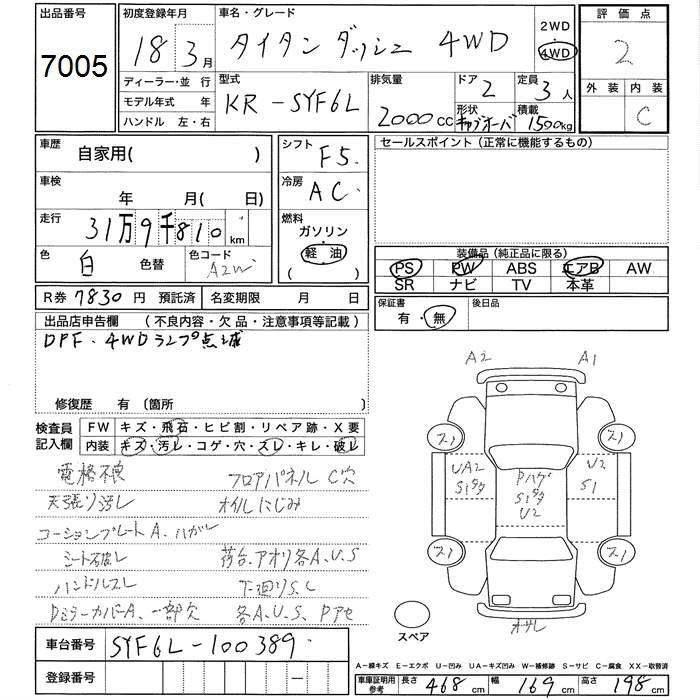 出品番号 初度登録年月 車名・グレード 2WD 評価点
7005 18 3月 タイタン ダッシュ 4WD 4WD 2
ディーラー・並行 型式 排気量 ドア 定員 外装 内装
モデル年式 年 KR-SYF6L 2000cc 2 3人 C
ハンドル 左・右 形状 キャブオーバ 積載 1500kg
車歴 自家用( ) シフト F5 セールスポイント (正常に機能するもの)
車検 年 月( 日) 冷房 AC
走行 31万9千810km 燃料 ガソリン・軽油 ( )
色 白 色替 色コード A2W 装備品 (純正品に限る)
PS PW ABS エアB AW
SR ナビ TV 本革
R券 7830円 預託済 名変期限 月 日 保証書 有・無 後日品
出品店申告欄 (不良内容・欠品・注意事項等記載)
DPF・4WDランプ点滅
修復歴 有 〔箇所 〕
検査員記入欄 FW キズ・飛石・ヒビ割・リペア跡・X要
内装 キズ・汚レ・コゲ・穴・スレ・キレ・破レ
電格不良 フロアパネル C穴
天張り汚レ オイルにじみ
コーションプレートA、ハガレ
シート破レ 荷台、アオリ各A、U、S
ハンドルスレ 下廻りS、C
Dミラーカバー A、一部欠 各A、U、S、Pアセ
A2 A1
スノ スノ
UA2 Pハゲ U2
S1タタ S1タタ S1
U2
スノ スノ
オサレ
スペア
車台番号 SYF6L-100389
登録番号 -
A-線キズ E-エクボ U-凹み UA-キズ凹み W-補修跡 S-サビ C-腐食 XX-取替済
車庫証明用参考 長さ 468cm 幅 169cm 高さ 198cm